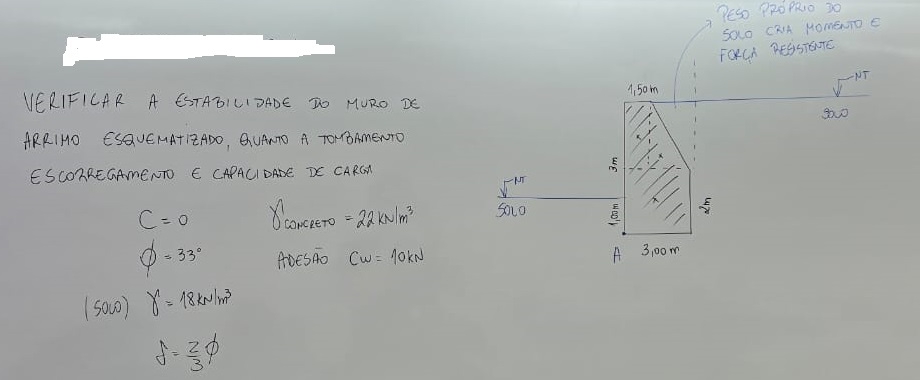 PESO PRÓPRIO DO
SOLO CRIA MOMENTO E
FORÇA RESISTENTE
VERIFICAR A ESTABILIDADE DO MURO DE
ARRIMO ESQUEMATIZADO, QUANTO A TOMBAMENTO
ESCORREGAMENTO E CAPACIDADE DE CARGA
C = 0
γCONCRETO = 22KN/m³
ϕ = 33°
ADESÃO CW = 10KN
(SOLO) γ = 18KN/m³
δ = 2/3 ϕ
1,50m
NT
SOLO
3m
NT
SOLO
1,00m
2m
A
3,00m